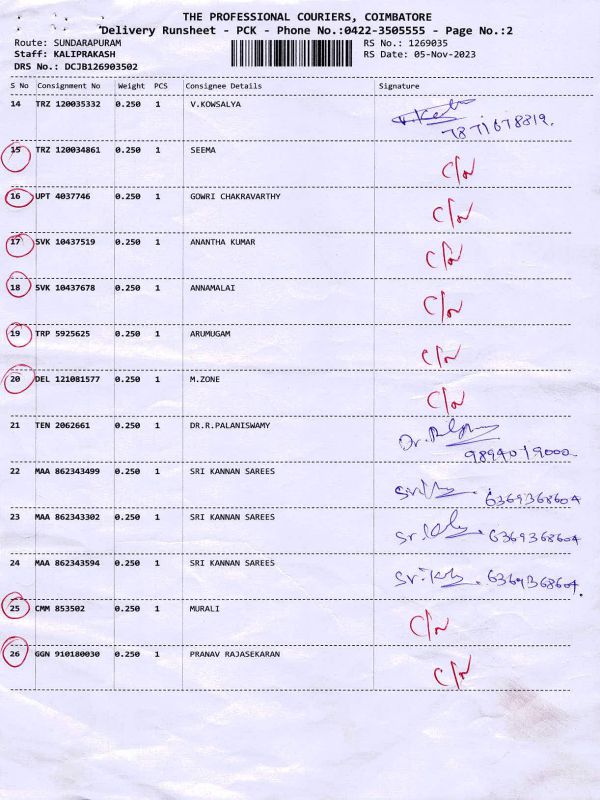 THE PROFESSIONAL COURIERS, COIMBATORE
Delivery Runsheet - PCK - Phone No.:0422-3505555 - Page No.:2
Route: SUNDARAPURAM RS No.: 1269035
Staff: KALIPRAKASH RS Date: 05-Nov-2023
DRS No.: DCJB126903502
S No Consignment No Weight PCS Consignee Details Signature
14 TRZ 120035332 0.250 1 V.KOWSALYA
7871678819.
15 TRZ 120034861 0.250 1 SEEMA C/n
16 UPT 4037746 0.250 1 GOWRI CHAKRAVARTHY C/n
17 SVK 10437519 0.250 1 ANANTHA KUMAR C/n
18 SVK 10437678 0.250 1 ANNAMALAI C/n
19 TRP 5925625 0.250 1 ARUMUGAM C/n
20 DEL 121081577 0.250 1 M.ZONE C/n
21 TEN 2062661 0.250 1 DR.R.PALANISWAMY Dr.
9894019000
22 MAA 862343499 0.250 1 SRI KANNAN SAREES 6369368604
23 MAA 862343302 0.250 1 SRI KANNAN SAREES 6369368604
24 MAA 862343594 0.250 1 SRI KANNAN SAREES 6369368604.
25 CMM 853502 0.250 1 MURALI C/n
26 GGN 910180030 0.250 1 PRANAV RAJASEKARAN C/n